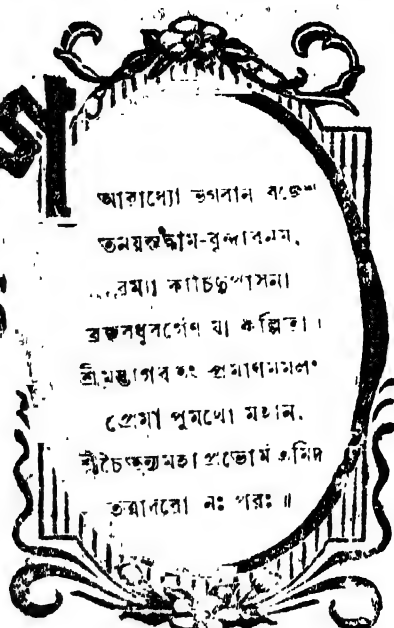 আরাধ্যো ভগবান ব্রজেশ
তনয়স্তদ্ধাম-বৃন্দাবনম,
রম্যা কাচিদুপাসনা
ব্রজবধুবর্গেণ যা কল্পিতা।
শ্রীমদ্ভাগবতং প্রমাণমমলং
প্রেমা পুমর্থো মহান,
শ্রীচৈতন্যমহাপ্রভোর্মতমিদং
তত্রাদরো নঃ পরঃ॥